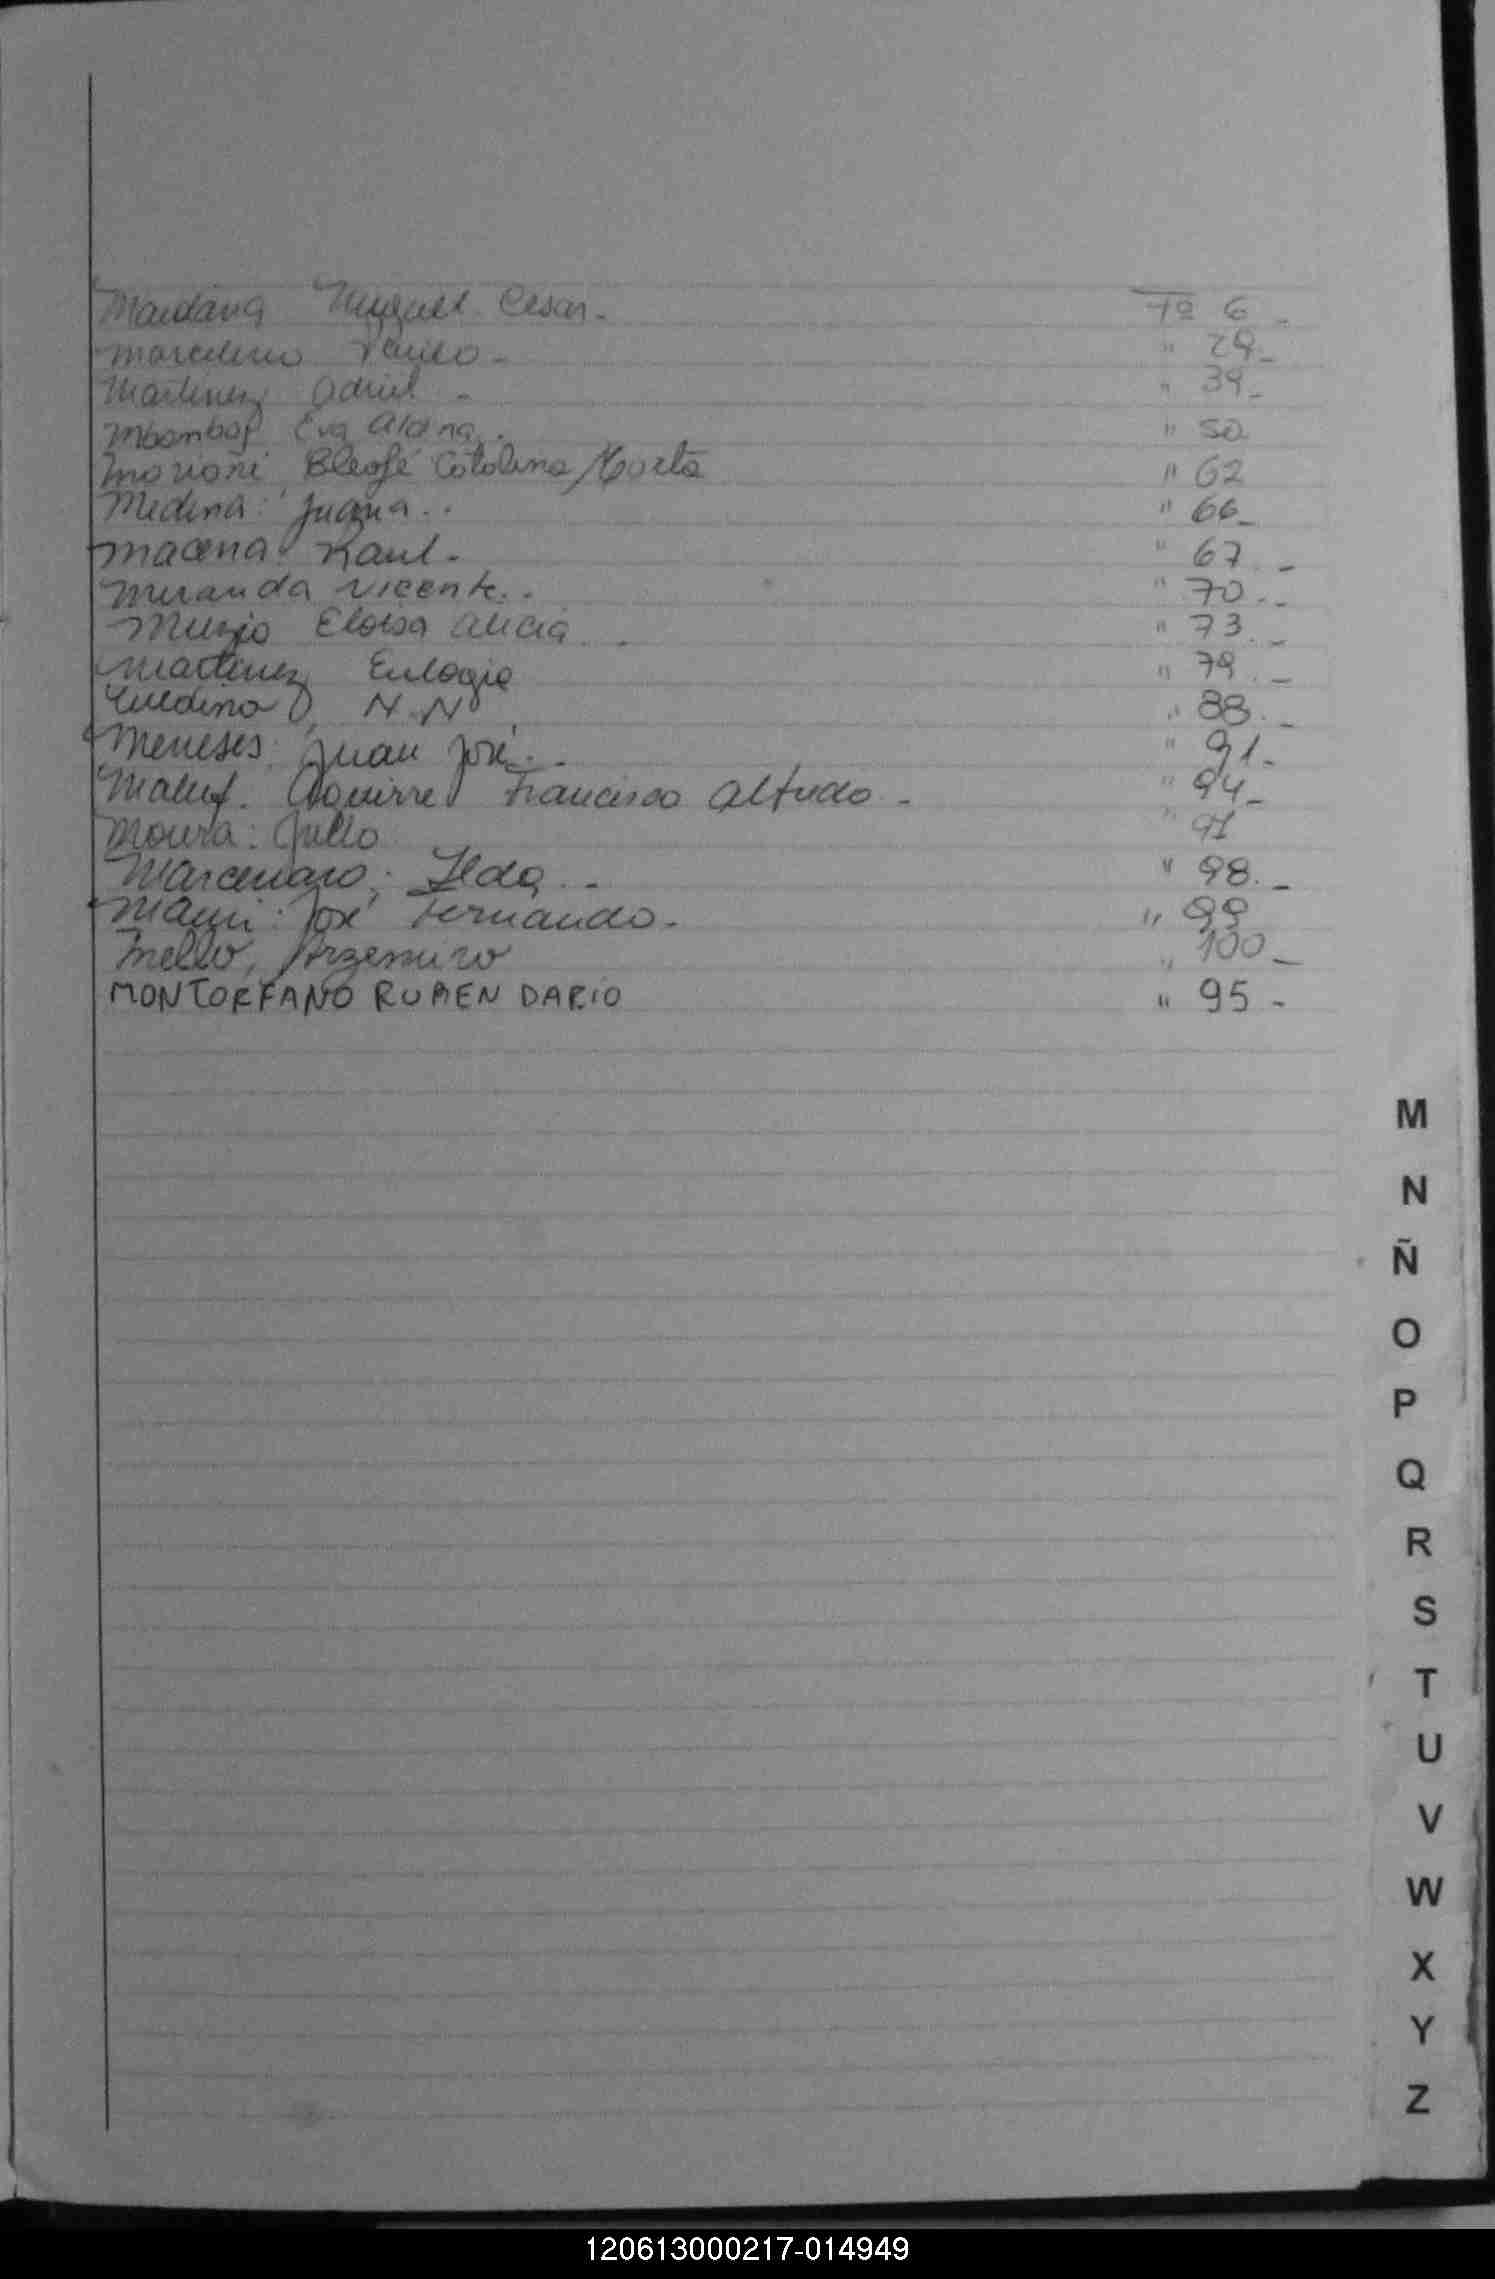 Maidana Miguel Cesar. Fº 6 -
Marcelino " 29 -
Martinez Adriel - " 39 -
Eva " 50
Marioni Cleofé Catalina Marta " 62
Medina: Juana.. " 66 -
Macena Raul - " 67 -
Miranda Vicente.. " 70 -
Muzio Eloisa Alicia.. " 73 -
Martinez Eulogio " 79 -
Medina N.N. " 88 -
Meneses: Juan José.. " 91 -
Maluf. Aguirre Francisco Alfredo - " 94 -
Moura: Julio " 97
Marcenaro; Ilda.. " 98 -
José Fernando - " 99
Mello, Argemiro " 100 -
MONTORFANO RUBEN DARIO " 95 -
M
N
Ñ
O
P
Q
R
S
T
U
V
W
X
Y
Z
120613000217-014949